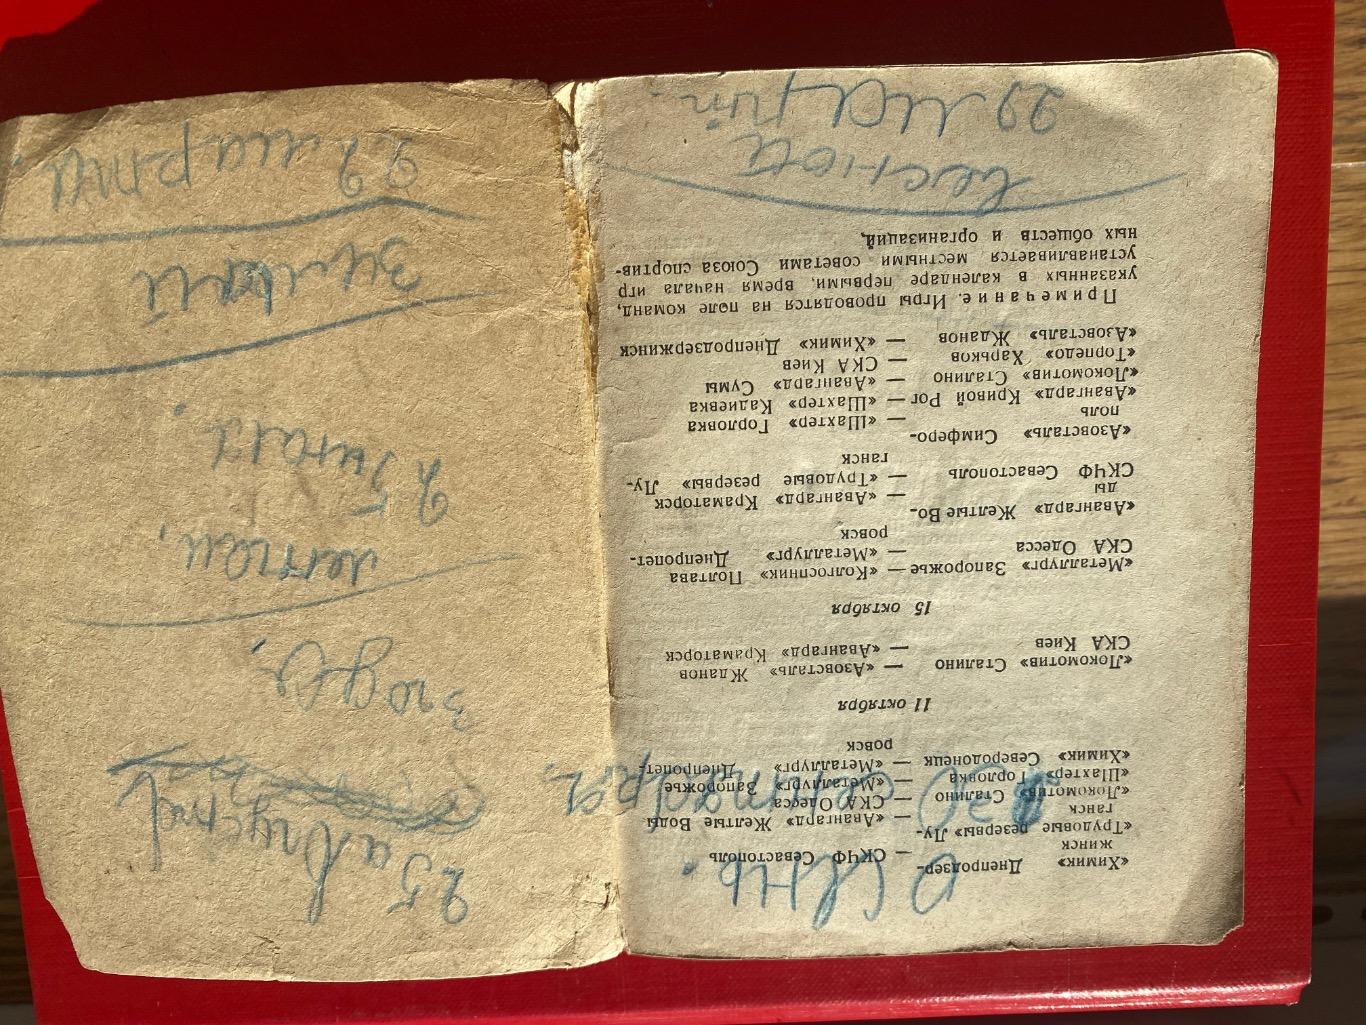 Осень.
«Химик» Днепродзер-
жинск — СКЧФ Севастополь
«Трудовые резервы» Лу-
ганск — «Авангард» Желтые Воды
«Локомотив» Сталино — СКА Одесса
30 сентября.
«Шахтер» Горловка — «Металлург» Запорожье
«Химик» Северодонецк — «Металлург» Днепропет-
ровск
11 октября
«Локомотив» Сталино — «Азовсталь» Жданов
СКА Киев — «Авангард» Краматорск
15 октября
«Металлург» Запорожье — «Колгоспник» Полтава
СКА Одесса — «Металлург» Днепропет-
ровск
«Авангард» Желтые Во-
ды — «Авангард» Краматорск
СКЧФ Севастополь — «Трудовые резервы» Лу-
ганск
«Азовсталь» Симферо-
поль — «Шахтер» Горловка
«Авангард» Кривой Рог — «Шахтер» Кадиевка
«Локомотив» Сталино — «Авангард» Сумы
«Торпедо» Харьков — СКА Киев
«Азовсталь» Жданов — «Химик» Днепродзержинск
Примечание. Игры проводятся на поле команд,
указанных в календаре первыми, время начала игр
устанавливается местными советами Союза спортив-
ных обществ и организаций.
весной
22 март.
25 августа
летом,
25 июля.
зимой
22 марта.